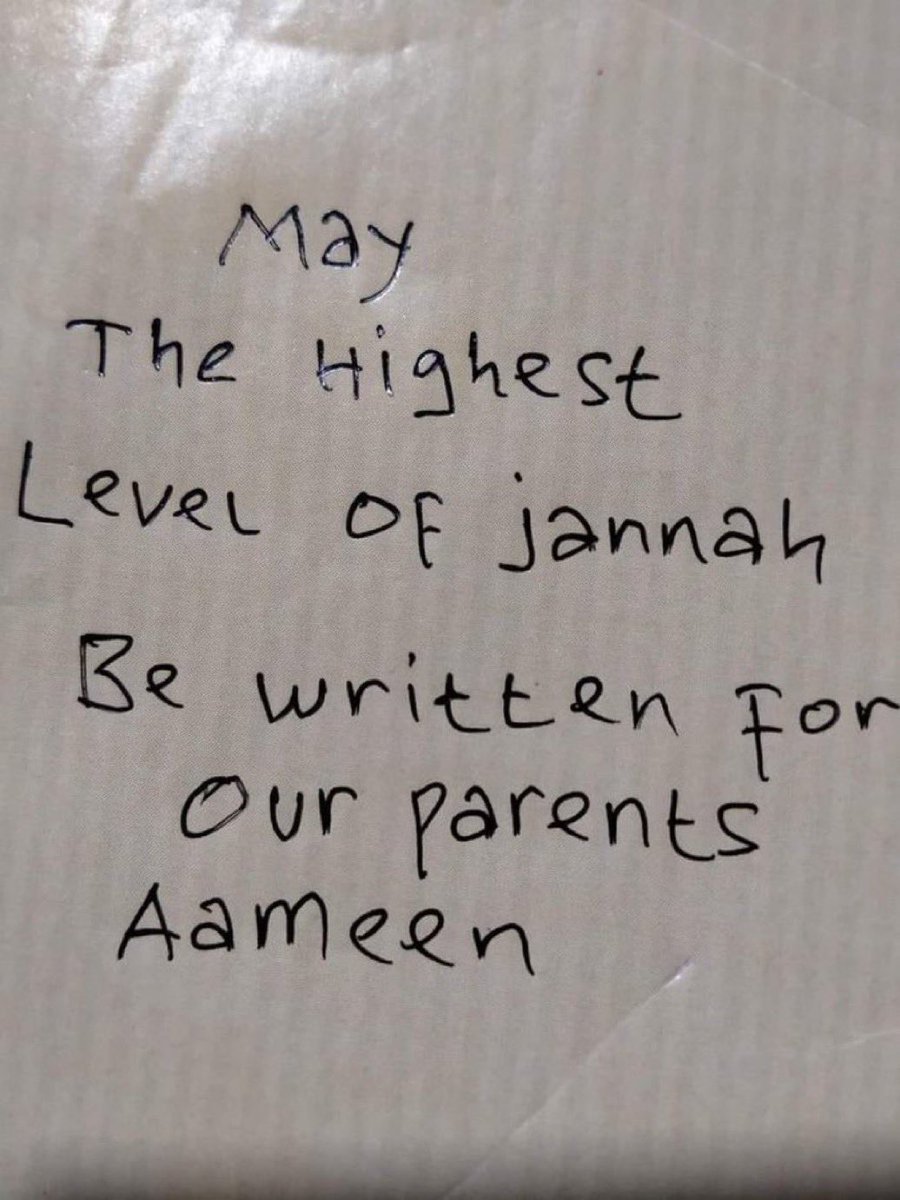 May
The Highest
Level of jannah
Be written for
Our parents
Aameen